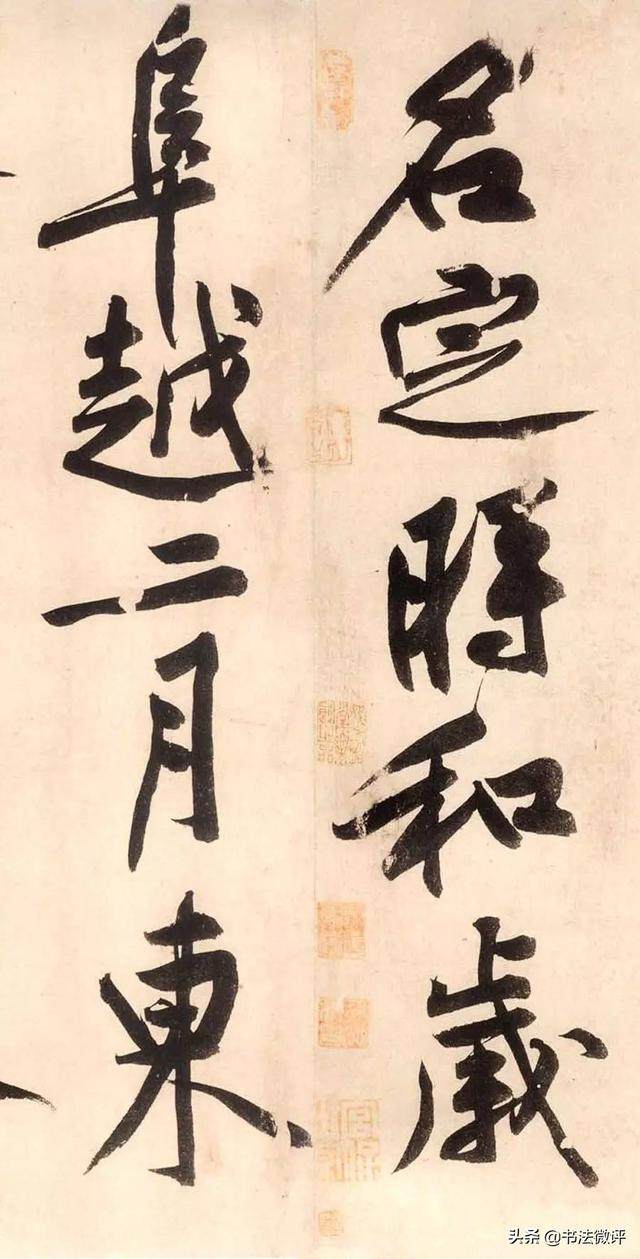 名定時和歲
阜越二月東
头条 @书法微评